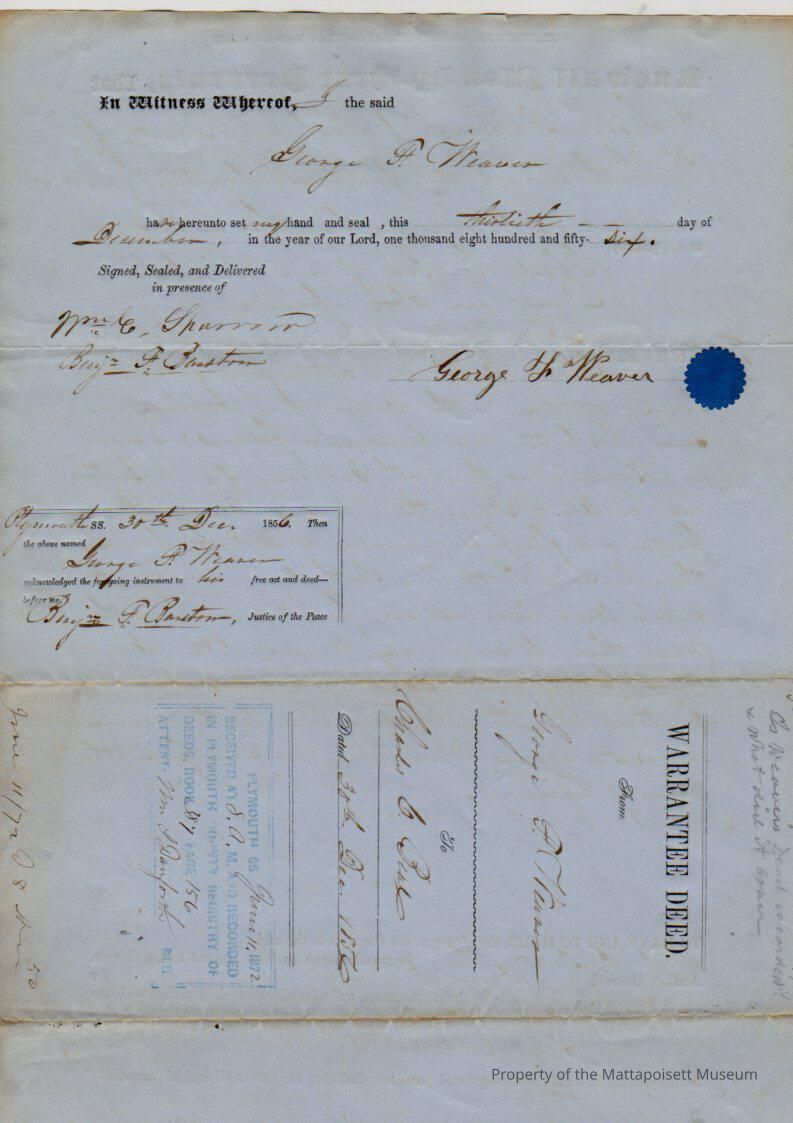 In Witness Whereof, I the said
George F. Weaver
have hereunto set my hand and seal , this thirtieth day of
December, in the year of our Lord, one thousand eight hundred and fifty- Six.
Signed, Sealed, and Delivered
in presence of
Wm C. Sparrow
Benjn F. Barstow
George F Weaver
Plymouth SS. 30th Dec. 1856. Then
the above named
George F. Weaver
acknowledged the foregoing instrument to his free act and deed—
before me,
Benjn F. Barstow, Justice of the Peace
Is Weavers Deed recorded?
& what did it cover
WARRANTEE DEED.
From
George F. Weaver
To
Charles C.
Dated 30th Dec. 1856
PLYMOUTH SS. June 11, 1872
RECEIVED AT 8. A. M. AND RECORDED
IN PLYMOUTH COUNTY REGISTRY OF
DEEDS, BOOK PAGE 156
ATTEST, Wm S Danforth REG.
June 11/72 8
Property of the Mattapoisett Museum